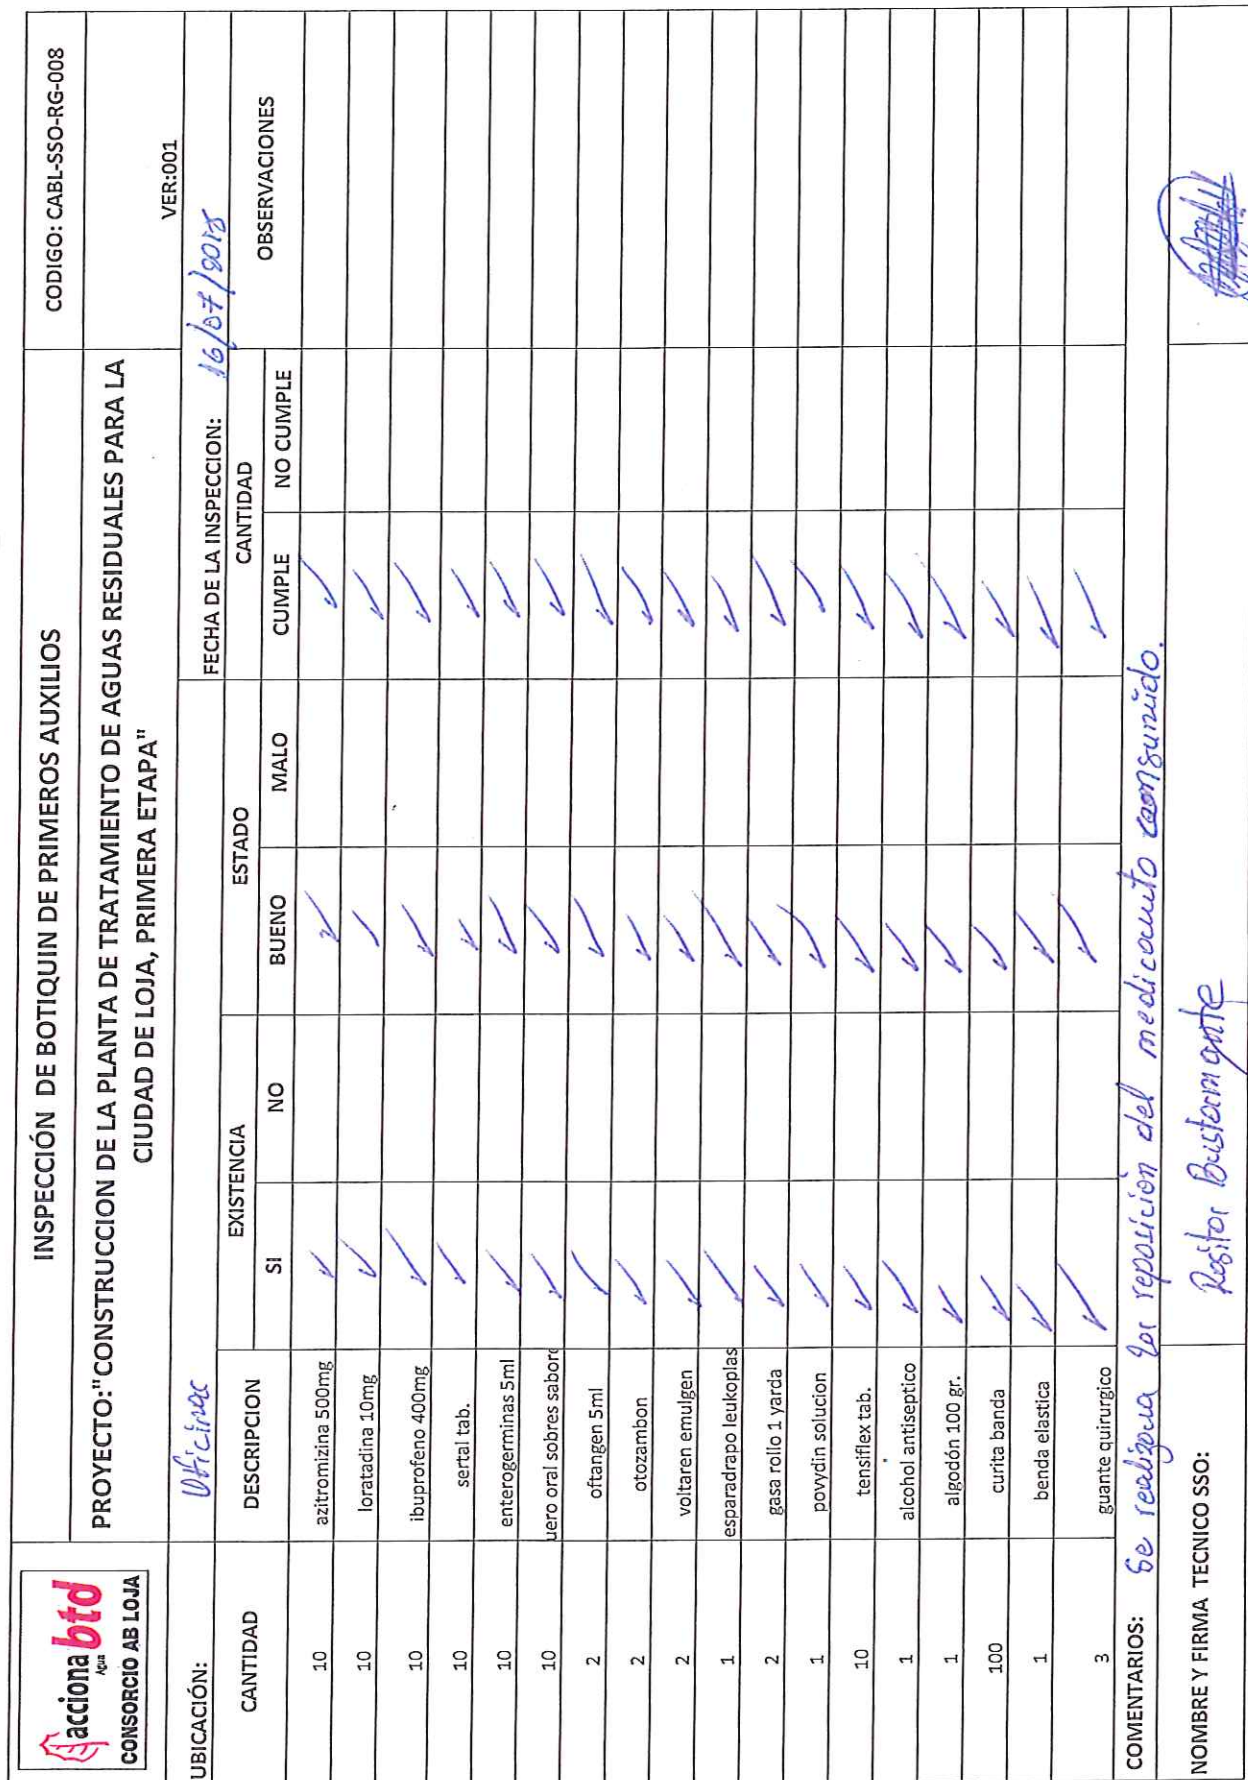 acciona
Agua
btd
CONSORCIO AB LOJA
INSPECCIÓN DE BOTIQUIN DE PRIMEROS AUXILIOS
CODIGO: CABL-SSO-RG-008
PROYECTO:"CONSTRUCCION DE LA PLANTA DE TRATAMIENTO DE AGUAS RESIDUALES PARA LA
CIUDAD DE LOJA, PRIMERA ETAPA"
VER:001
UBICACIÓN: Oficinas FECHA DE LA INSPECCION: 16/07/2018
CANTIDAD DESCRIPCION EXISTENCIA ESTADO CANTIDAD OBSERVACIONES
SI NO BUENO MALO CUMPLE NO CUMPLE
10 azitromizina 500mg ✓ ✓ ✓
10 loratadina 10mg ✓ ✓ ✓
10 ibuprofeno 400mg ✓ ✓ ✓
10 sertal tab. ✓ ✓ ✓
10 enterogerminas 5ml ✓ ✓ ✓
10 uero oral sobres sabore ✓ ✓ ✓
2 oftangen 5ml ✓ ✓ ✓
2 otozambon ✓ ✓ ✓
2 voltaren emulgen ✓ ✓ ✓
1 esparadrapo leukoplas ✓ ✓ ✓
2 gasa rollo 1 yarda ✓ ✓ ✓
1 povydin solucion ✓ ✓ ✓
10 tensiflex tab. ✓ ✓ ✓
1 alcohol antiseptico ✓ ✓ ✓
1 algodón 100 gr. ✓ ✓ ✓
100 curita banda ✓ ✓ ✓
1 benda elastica ✓ ✓ ✓
3 guante quirurgico ✓ ✓ ✓
COMENTARIOS: Se realiza la reposición del medicamento consumido.
NOMBRE Y FIRMA TECNICO SSO: Bustamante